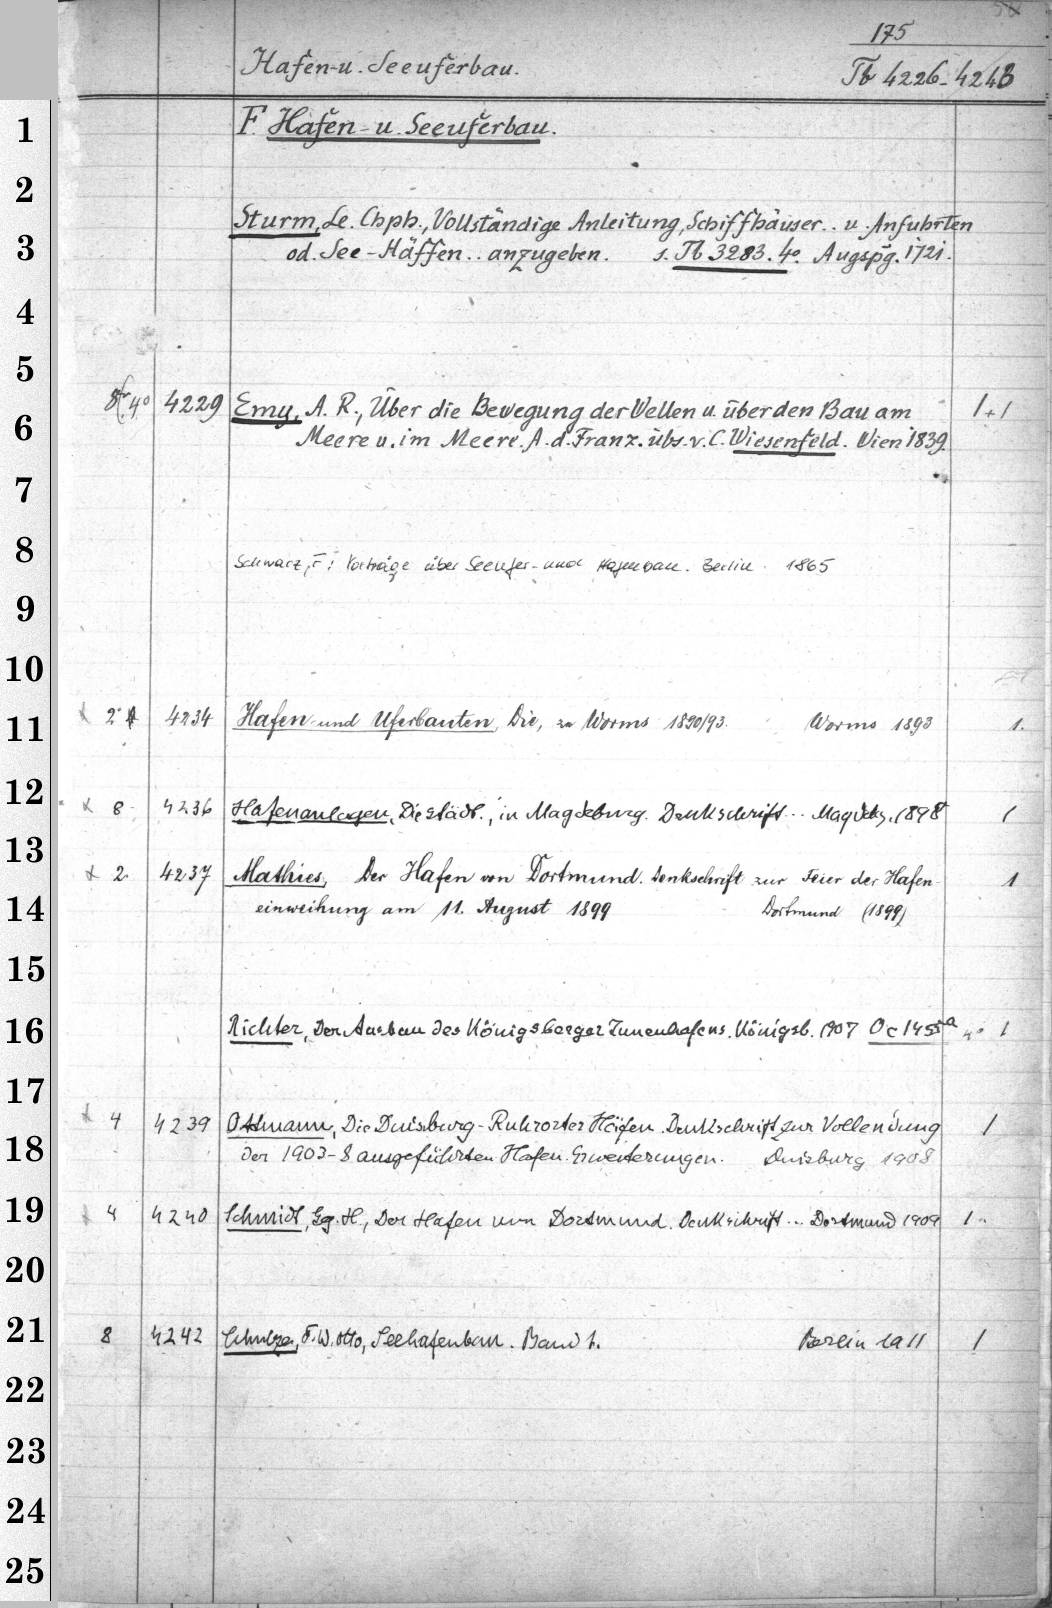 175
Hafen- u. Seeuferbau. Tb 4226-4243
F. Hafen- u. Seeuferbau.
Sturm, Le. Chph., Vollständige Anleitung, Schiffhäuser.. u. Anfuhrten
od. See-Häffen.. anzugeben. s. Tb 3283. 4° Augspg. 1721.
4° 4229 Emy, A. R., Über die Bewegung der Wellen u. über den Bau am 1+1
Meere u. im Meere. A. d. Franz. übs. v. C. Wiesenfeld. Wien 1839.
Schwarz, F: Vorträge über Seeufer- und Hafenbau. Berlin. 1865
x 2° 4234 Hafen- und Uferbauten, Die, zu Worms 1890/93. Worms 1893 1.
x 8 4236 Hafenanlagen, Die städt., in Magdeburg. Denkschrift... Magdebg. 1898 1
x 2. 4237 Mathies, Der Hafen von Dortmund. Denkschrift zur Feier der Hafen- 1
einweihung am 11. August 1899 Dortmund (1899)
Richter, Der Ausbau des Königsberger Innenhafens. Königsb. 1907 Oc 1455a 4° 1
x 4 4239 Ottmann, Die Duisburg-Ruhrorter Häfen. Denkschrift zur Vollendung 1
der 1903-8 ausgeführten Hafen-Erweiterungen. Duisburg 1908
x 4 4240 Schmidt, Gg. H., Der Hafen von Dortmund. Denkschrift... Dortmund 1909 1.
8 4242 Schulze, F. W. Otto, Seehafenbau. Band 1. Berlin 1911 1
1
2
3
4
5
6
7
8
9
10
11
12
13
14
15
16
17
18
19
20
21
22
23
24
25